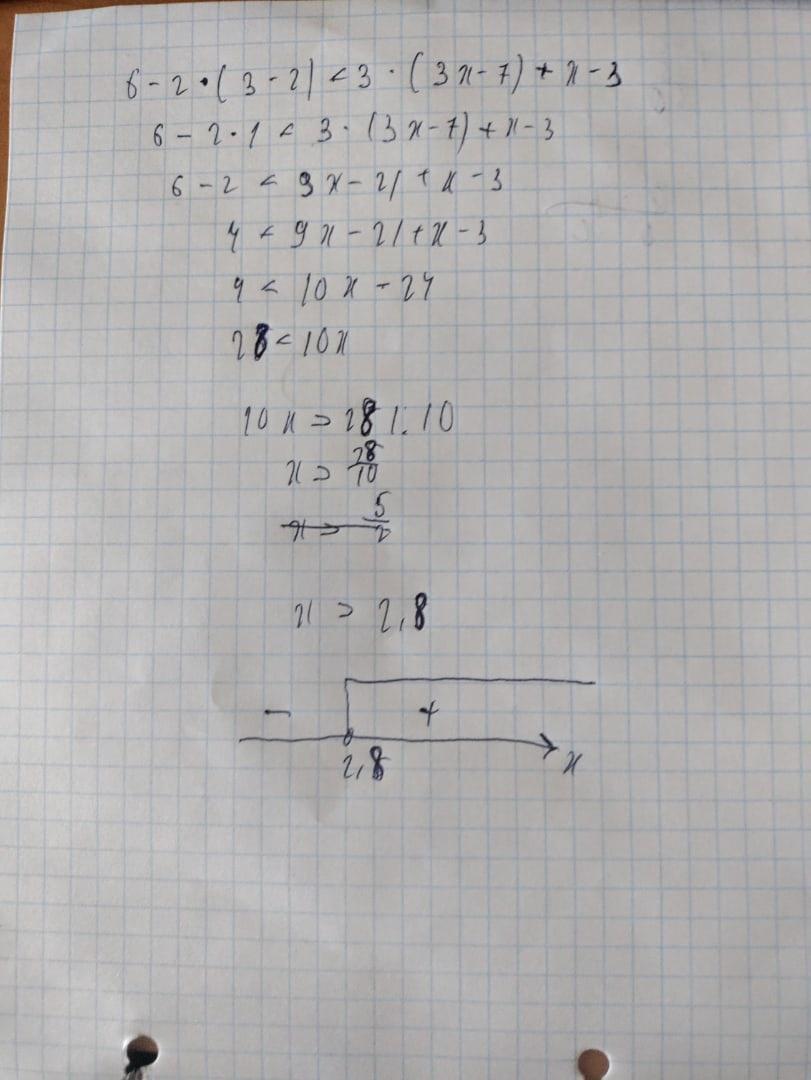 6 - 2 · (3 - 2) < 3 · (3x - 7) + x - 3
6 - 2 · 1 < 3 · (3x - 7) + x - 3
6 - 2 < 9x - 21 + x - 3
4 < 9x - 21 + x - 3
4 < 10x - 24
28 < 10x
10x > 28 | : 10
x > 28/10
x > 5/2
x > 2,8
- +
2,8 x